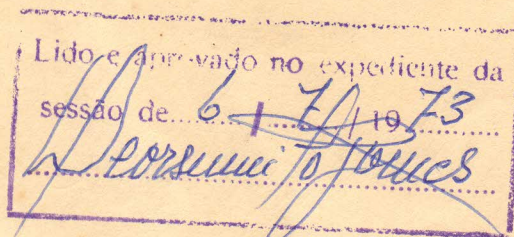 Lido e aprovado no expediente da
sessão de 6 / 7 / 1973